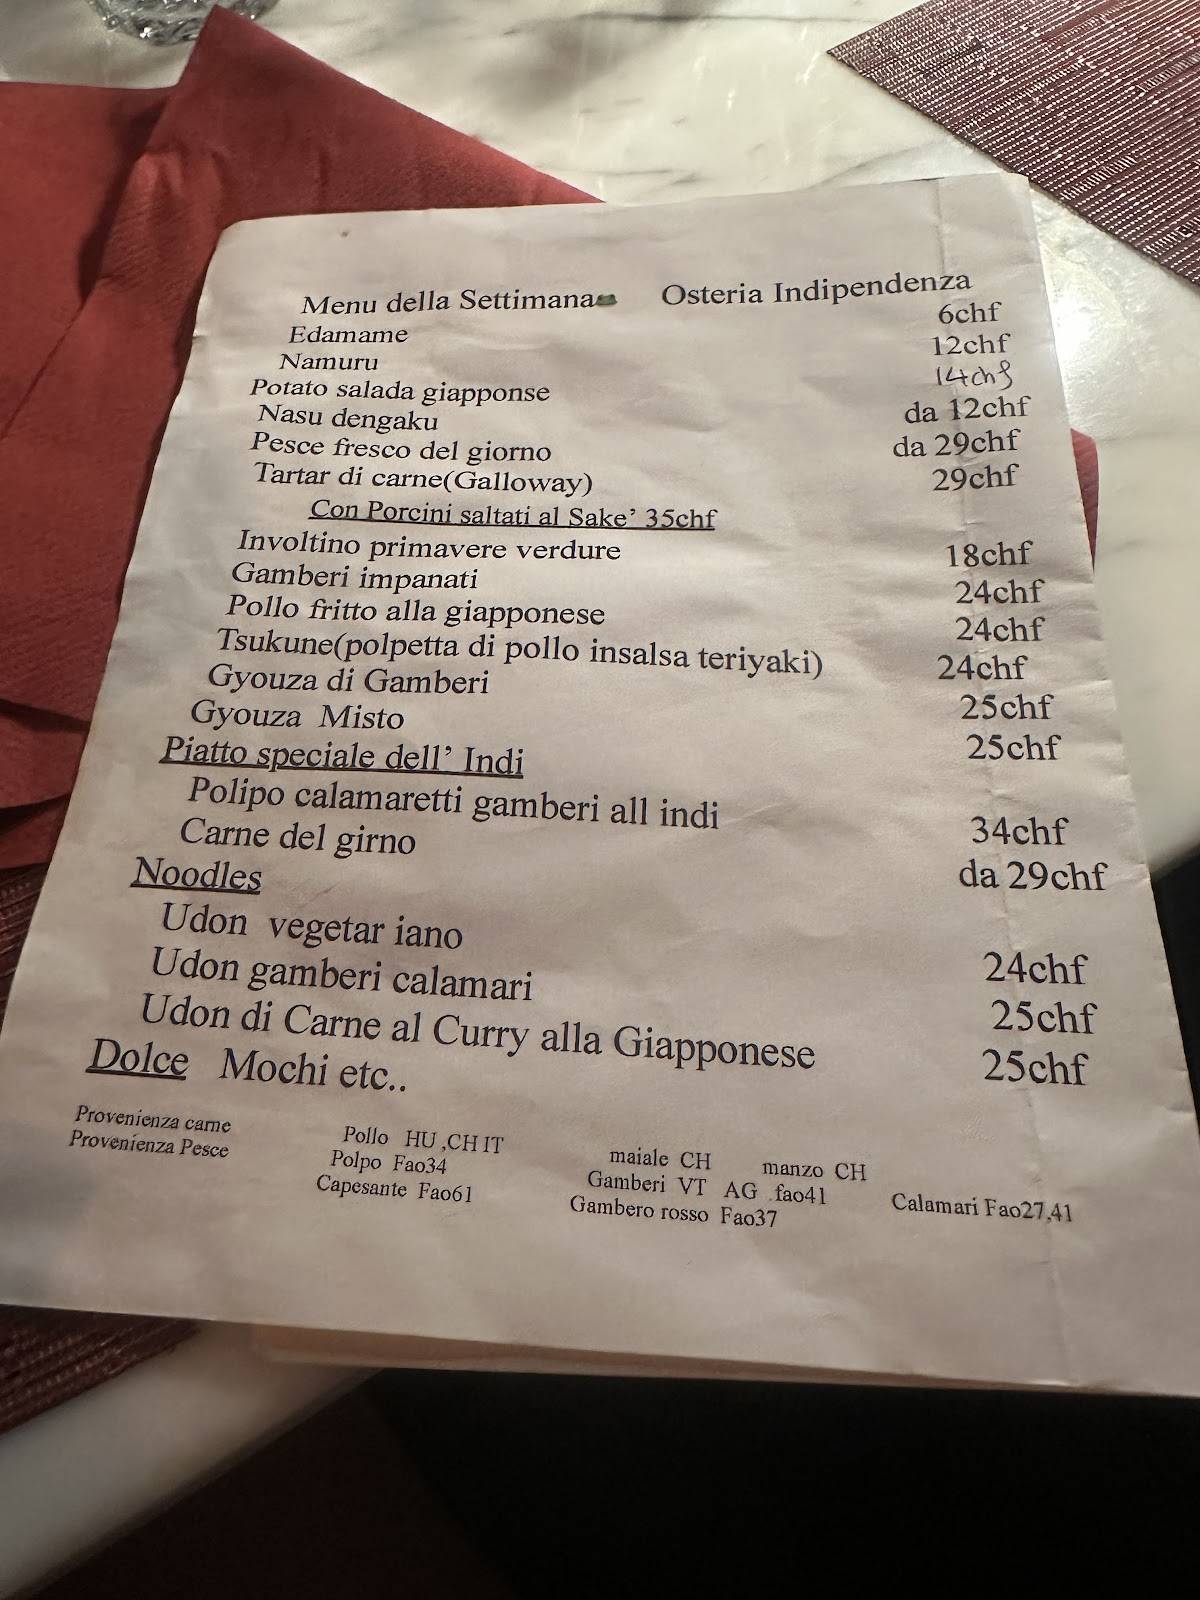 Menu della Settimana Osteria Indipendenza
Edamame 6chf
Namuru 12chf
Potato salada giapponse 14chf
Nasu dengaku da 12chf
Pesce fresco del giorno da 29chf
Tartar di carne(Galloway) 29chf
Con Porcini saltati al Sake’ 35chf
Involtino primavere verdure 18chf
Gamberi impanati 24chf
Pollo fritto alla giapponese 24chf
Tsukune(polpetta di pollo insalsa teriyaki) 24chf
Gyouza di Gamberi 25chf
Gyouza Misto 25chf
Piatto speciale dell’ Indi
Polipo calamaretti gamberi all indi 34chf
Carne del girno da 29chf
Noodles
Udon vegetar iano 24chf
Udon gamberi calamari 25chf
Udon di Carne al Curry alla Giapponese 25chf
Dolce Mochi etc..
Provenienza carne Pollo HU ,CH IT maiale CH manzo CH
Provenienza Pesce Polpo Fao34 Gamberi VT AG .fao41 Calamari Fao27,41
Capesante Fao61 Gambero rosso Fao37